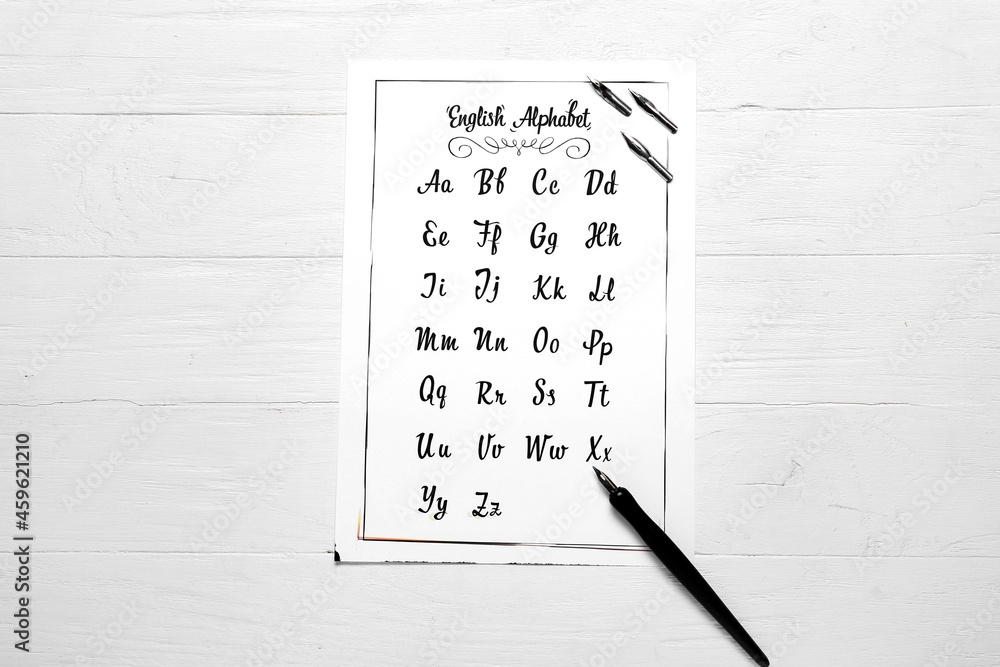 English Alphabet
Aa Bb Cc Dd
Ee Ff Gg Hh
Ii Jj Kk Ll
Mm Nn Oo Pp
Qq Rr Ss Tt
Uu Vv Ww Xx
Yy Zz
Adobe Stock | #459621210